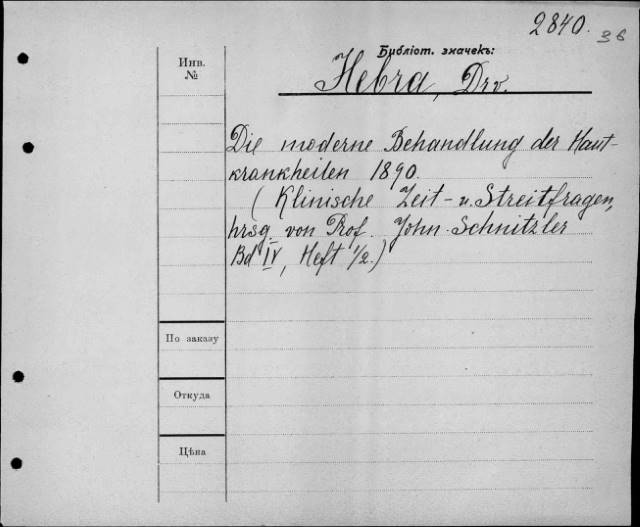 2840. 36
Библіот. значекъ:
Инв.
№
Hebra, Dr v.
Die moderne Behandlung der Haut-
krankheiten 1890.
( Klinische Zeit- u. Streitfragen,
hrsg. von Prof. John. Schnitzler
Bd IV, Heft 1/2.)
По заказу
Откуда
Цѣна